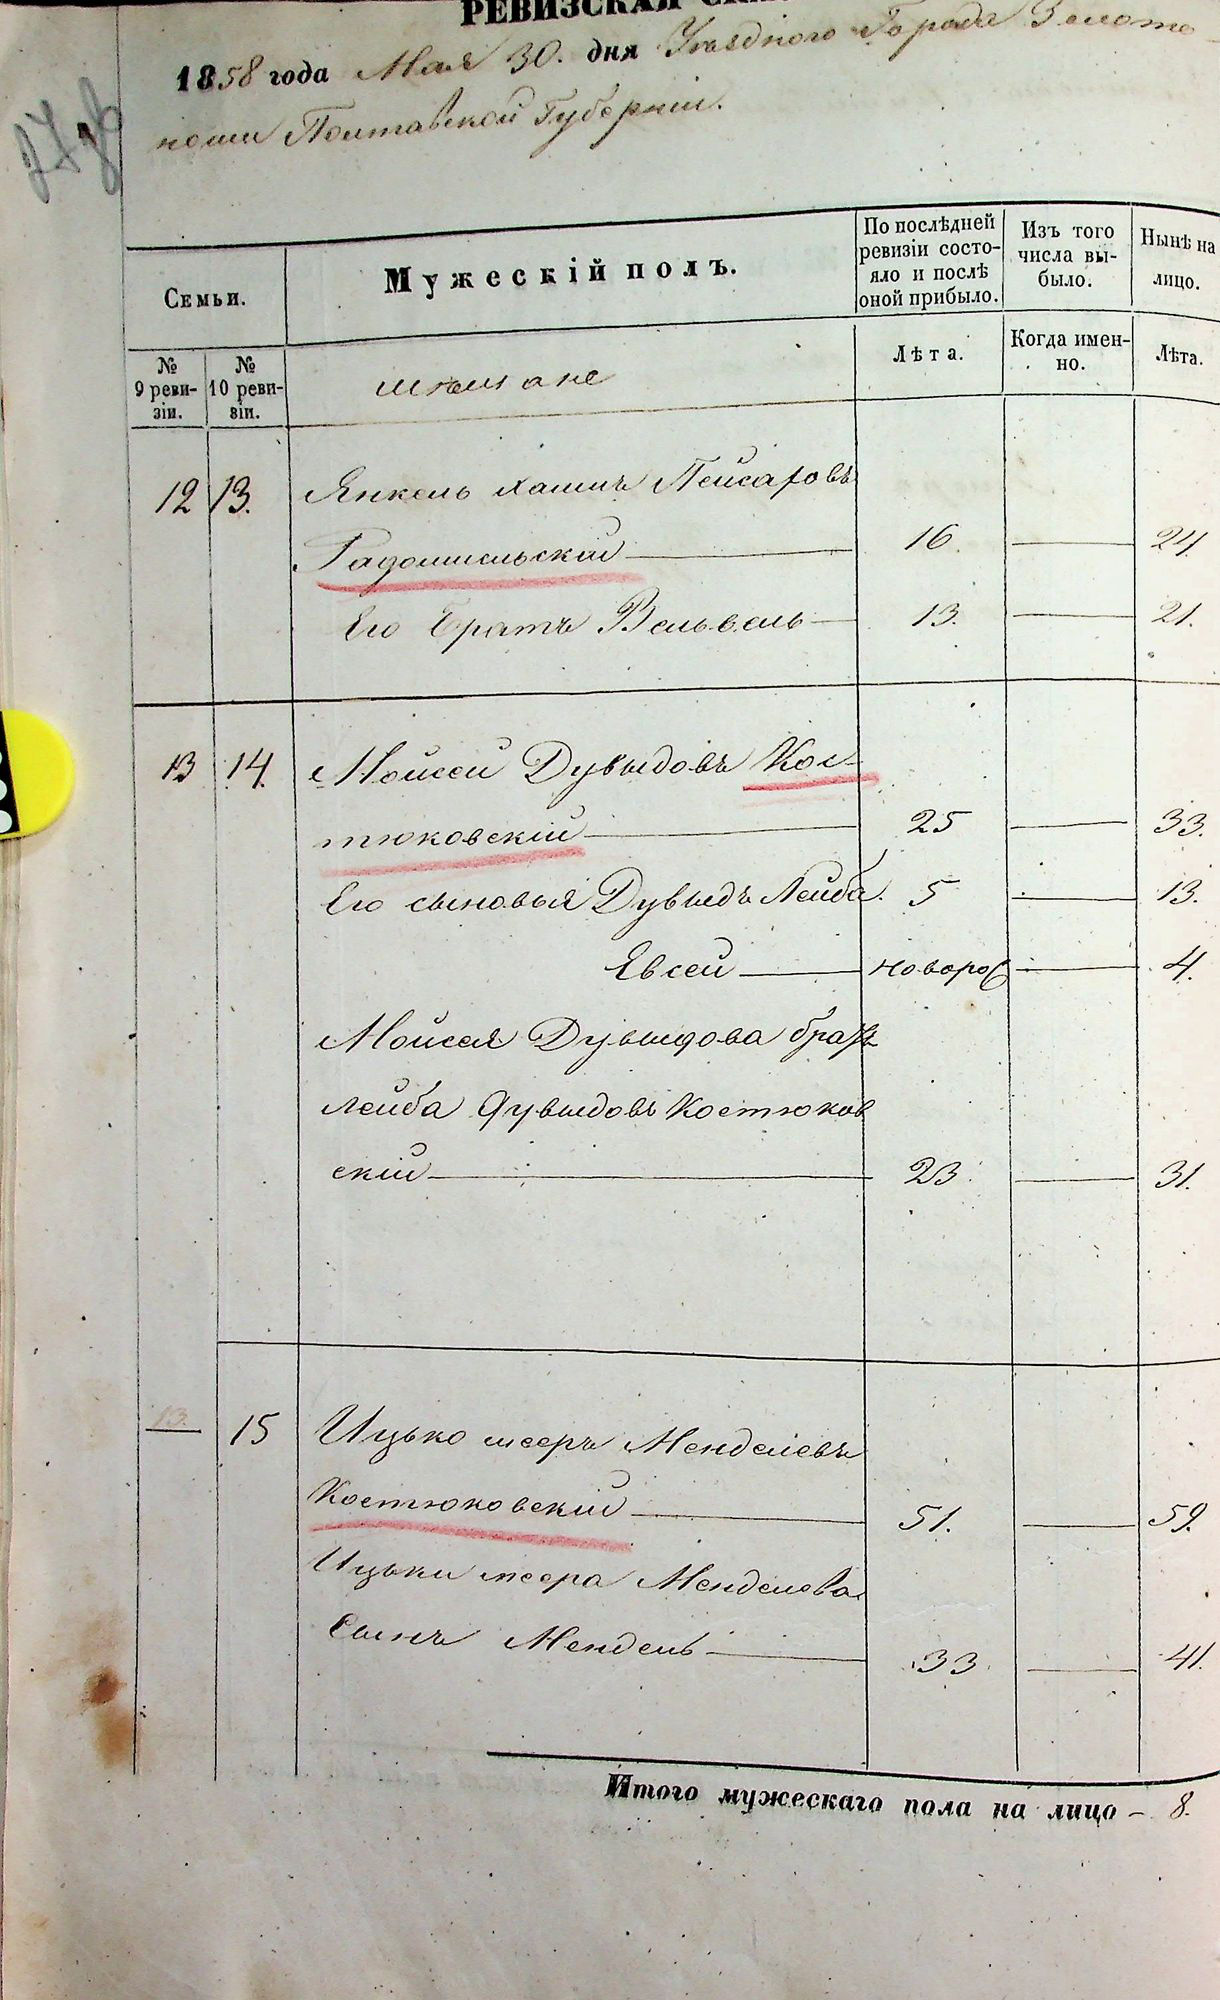 РЕВИЗСКАЯ
1858 года Мая 30. дня Уѣзднаго Города Золото-
ноши Полтавской Губерніи.
Семьи.
Мужескій полъ.
По послѣдней ревизіи состо-яло и послѣ оной прибыло.
Изъ того числа вы-было.
Нынѣ на лицо.
№ 9 реви-зіи.
№ 10 реви-зіи.
мѣщане
Лѣта.
Когда имен-но.
Лѣта.
12 13. Янкель Хаимъ Пейсаховъ
Радомисльскій 16. 24.
Его братъ Вельвель 13. 21.
13 14. Мойсей Дувыдовъ Кос-
тюковскій 25 33.
Его сыновья Дувыдъ Лейба. 5 13.
Евсей новорож 4.
Мойсея Дувыдова братъ
Лейба Дувыдовъ Костюков
скій 23. 31.
13. 15 Ицько мееръ Менделевъ
Костюковскій 51. 59.
Ицьки меера Менделева
Сынъ Мендель 33. 41.
Итого мужескаго пола на лицо – 8.